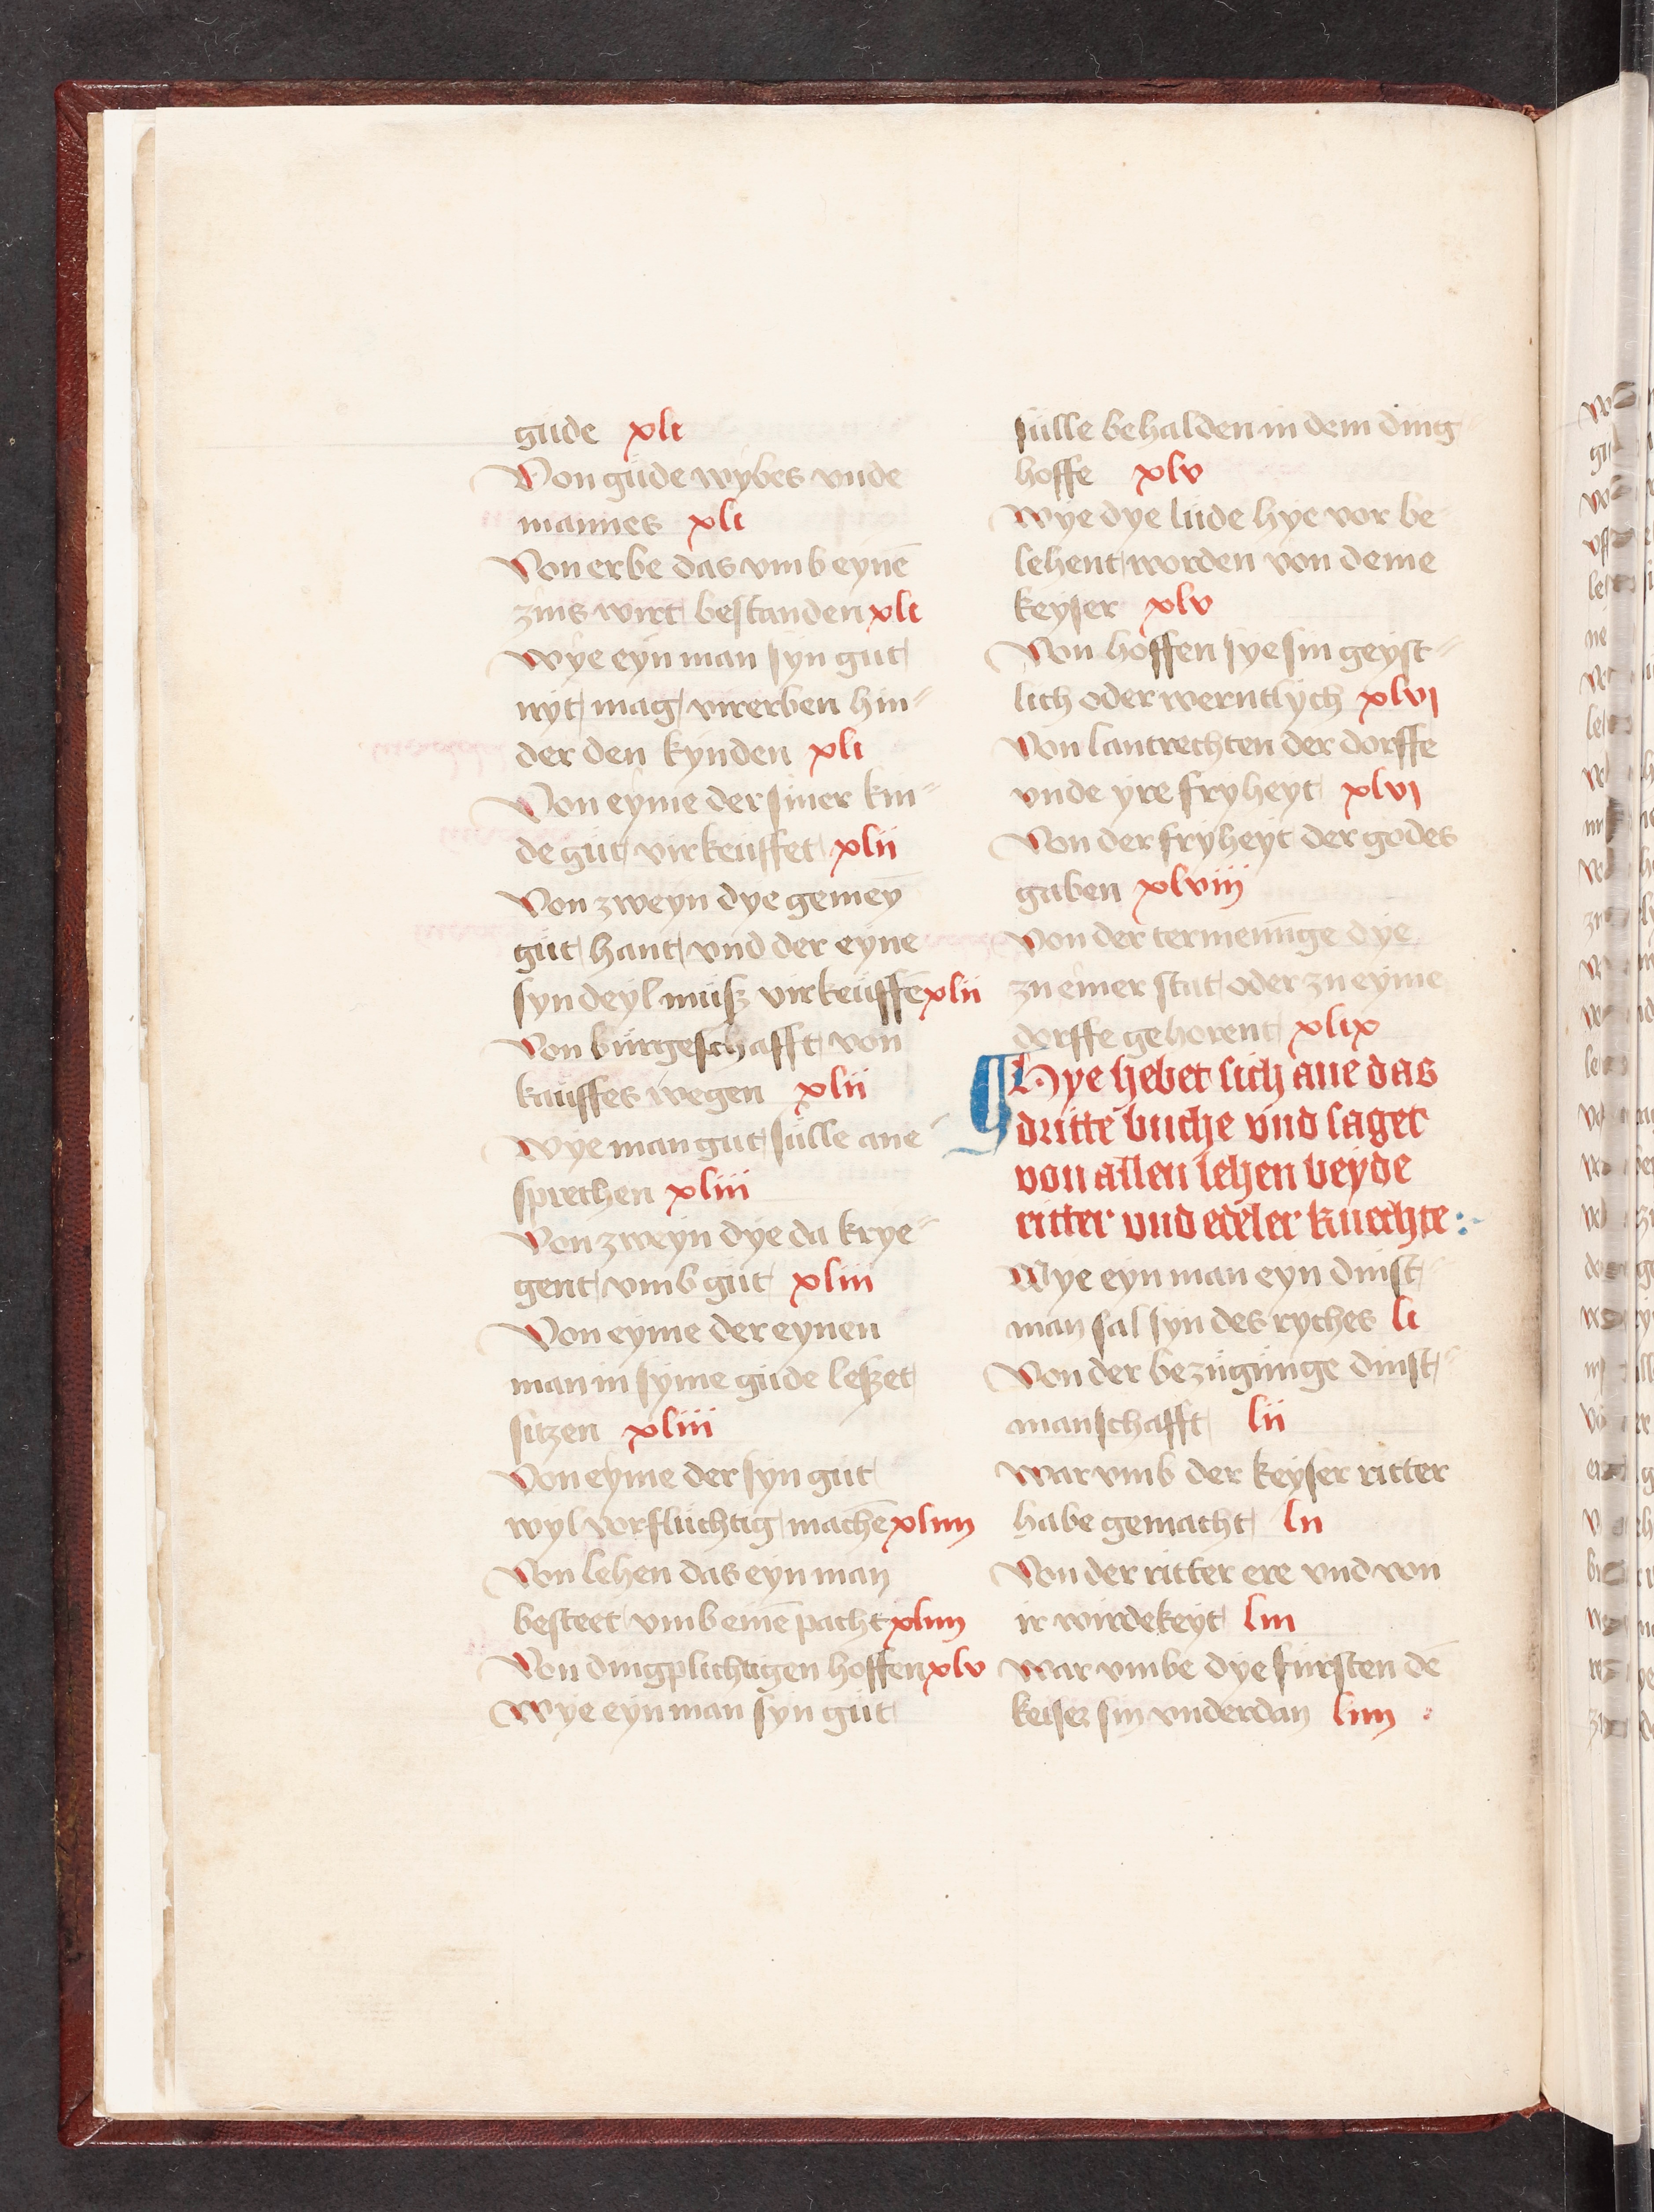 gude xli
Von gude wybes vnde
mannes xli
Von erbe das vmb eynē
zins wirt bestanden xli
Wye eyn man syn gut
nyt mag virerben hin⸗
der den kynden xli
Von eyme der siner kin⸗
de gut virkeuffet xlii
Von zweyn dye gemeȳ
gut hant vnd der eyne
syn deyl musz virkeuffē xlii
Von burgeschafft von
kauffes wegen xlii
Wye man gut sulle ane⸗
sprechen xliii
Von zweyn dye da krye⸗
gent vmb gut xliii
Von eyme der eynen
man in syme gude leszet
sitzen xliii
Von eyme der syn gut
wyl vorfluchtig machē xliiij
Von lehen das eyn man
besteet vmb einē pacht xliiij
Von dingplichtigen hoffen xlv
Wye eyn man syn gut
sulle behalden in dem ding⸗
hoffe xlv
Wye dye lude hye vor be
lehent worden von deme
keyser xlv
Von hoffen sye sin geyst⸗
lich oder werntlych xlvj
Von lantrechten der dorffe
vnde yre fryheyt xlvj
Von der fryheyt der godes
gaben xlviij
Von der termenūge dye
zu einer stat oder zu eyme
dorffe gehorent xlix
Hye hebet sich ane das
dritte buche vnd saget
von allen lehen beyde
ritter vnd edeler knechte :⸗
Wye eyn man eyn dinst⸗
man sal syn des ryches li
Von der bezugunge dinst⸗
manschafft lii
War vmb der keyser ritter
habe gemacht lii
Von der ritter ere vnd von
ir wirdekeyt liii
War vmbe dye fursten dē
keiser sin vnderdan liiij